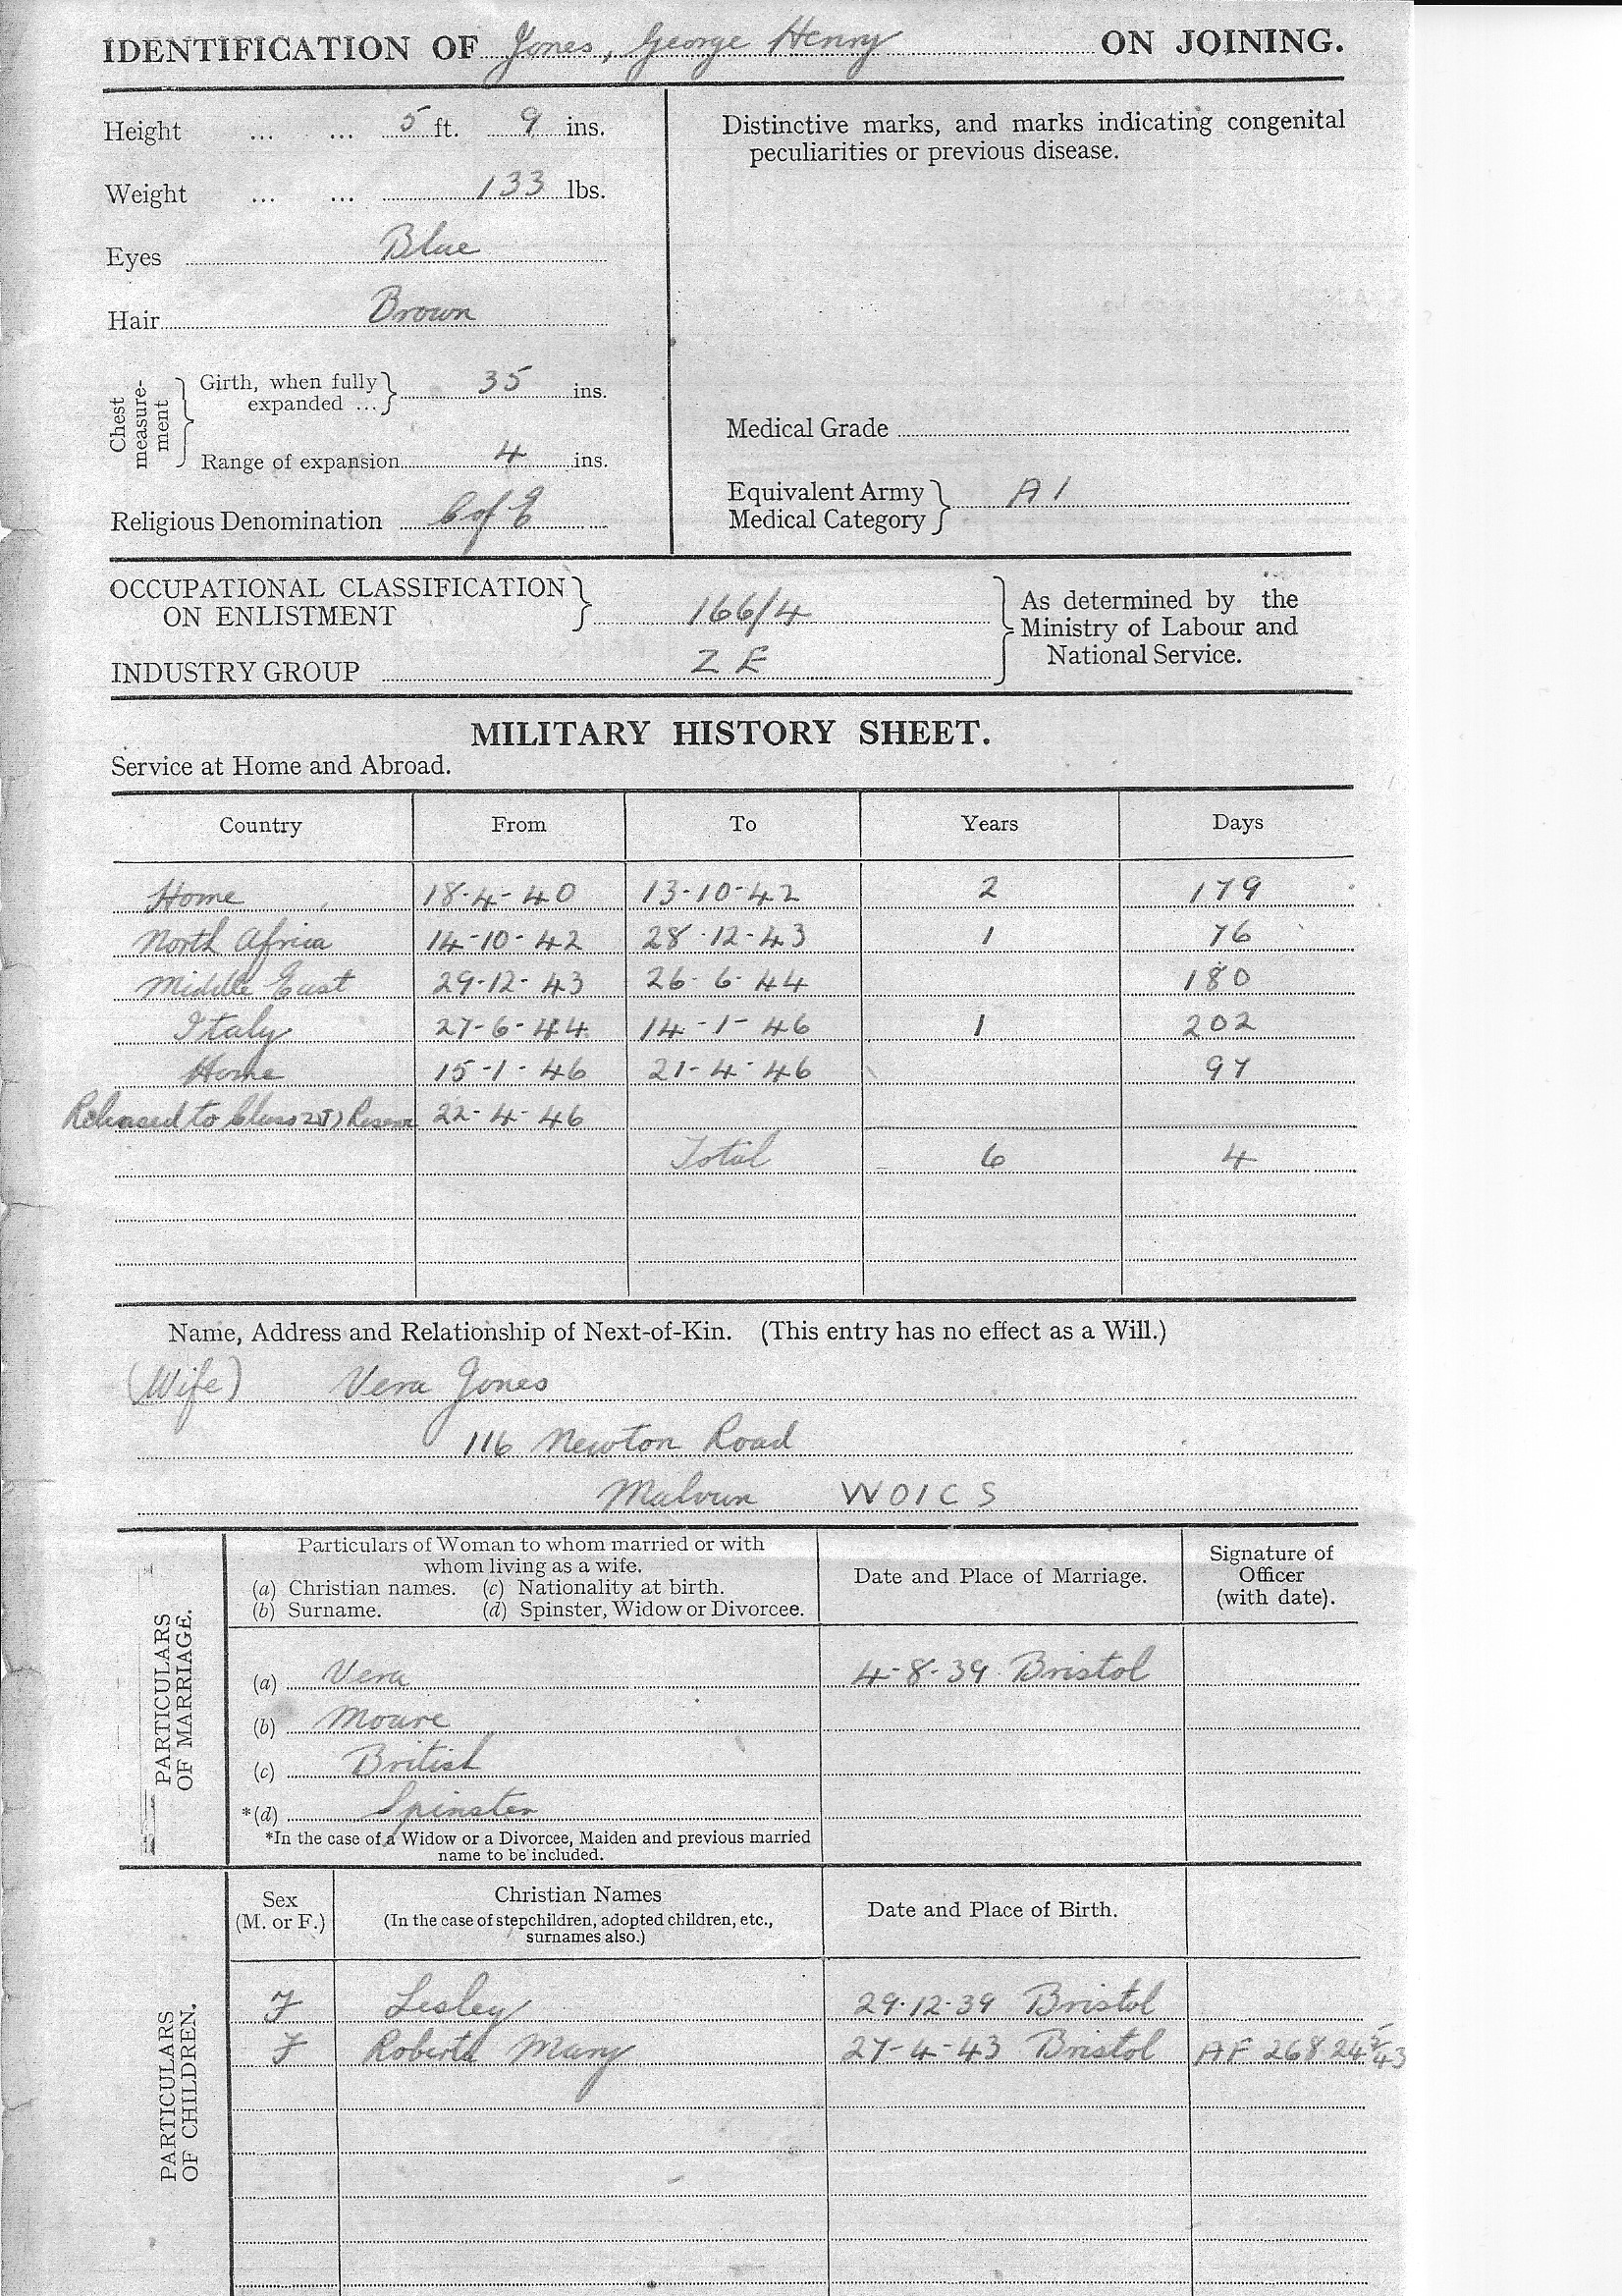 IDENTIFICATION OF Jones, George Henry ON JOINING.
Height ... ... 5 ft. 9 ins.
Weight ... ... 133 lbs.
Eyes Blue
Hair Brown
Chest measure-ment
Girth, when fully expanded ... 35 ins.
Range of expansion 4 ins.
Religious Denomination C of E
Distinctive marks, and marks indicating congenital
peculiarities or previous disease.
Medical Grade
Equivalent Army
Medical Category A 1
OCCUPATIONAL CLASSIFICATION
ON ENLISTMENT 166/4
INDUSTRY GROUP Z E
As determined by the
Ministry of Labour and
National Service.
MILITARY HISTORY SHEET.
Service at Home and Abroad.
Country From To Years Days
Home 18-4-40 13-10-42 2 179
North Africa 14-10-42 28-12-43 1 76
Middle East 29-12-43 26-6-44 180
Italy 27-6-44 14-1-46 1 202
Home 15-1-46 21-4-46 97
Released to Class Reserve 22-4-46
Total 6 4
Name, Address and Relationship of Next-of-Kin. (This entry has no effect as a Will.)
(Wife) Vera Jones
116 Newton Road
Malvern WOICS
PARTICULARS
OF MARRIAGE.
Particulars of Woman to whom married or with
whom living as a wife.
(a) Christian names. (c) Nationality at birth.
(b) Surname. (d) Spinster, Widow or Divorcee.
Date and Place of Marriage.
Signature of
Officer
(with date).
(a) Vera 4-8-39 Bristol
(b) Moare
(c) British
*(d) Spinster
*In the case of a Widow or a Divorcee, Maiden and previous married
name to be included.
PARTICULARS
OF CHILDREN.
Sex
(M. or F.)
Christian Names
(In the case of stepchildren, adopted children, etc.,
surnames also.)
Date and Place of Birth.
F Lesley 29-12-39 Bristol
F Roberta Mary 27-4-43 Bristol AF 268